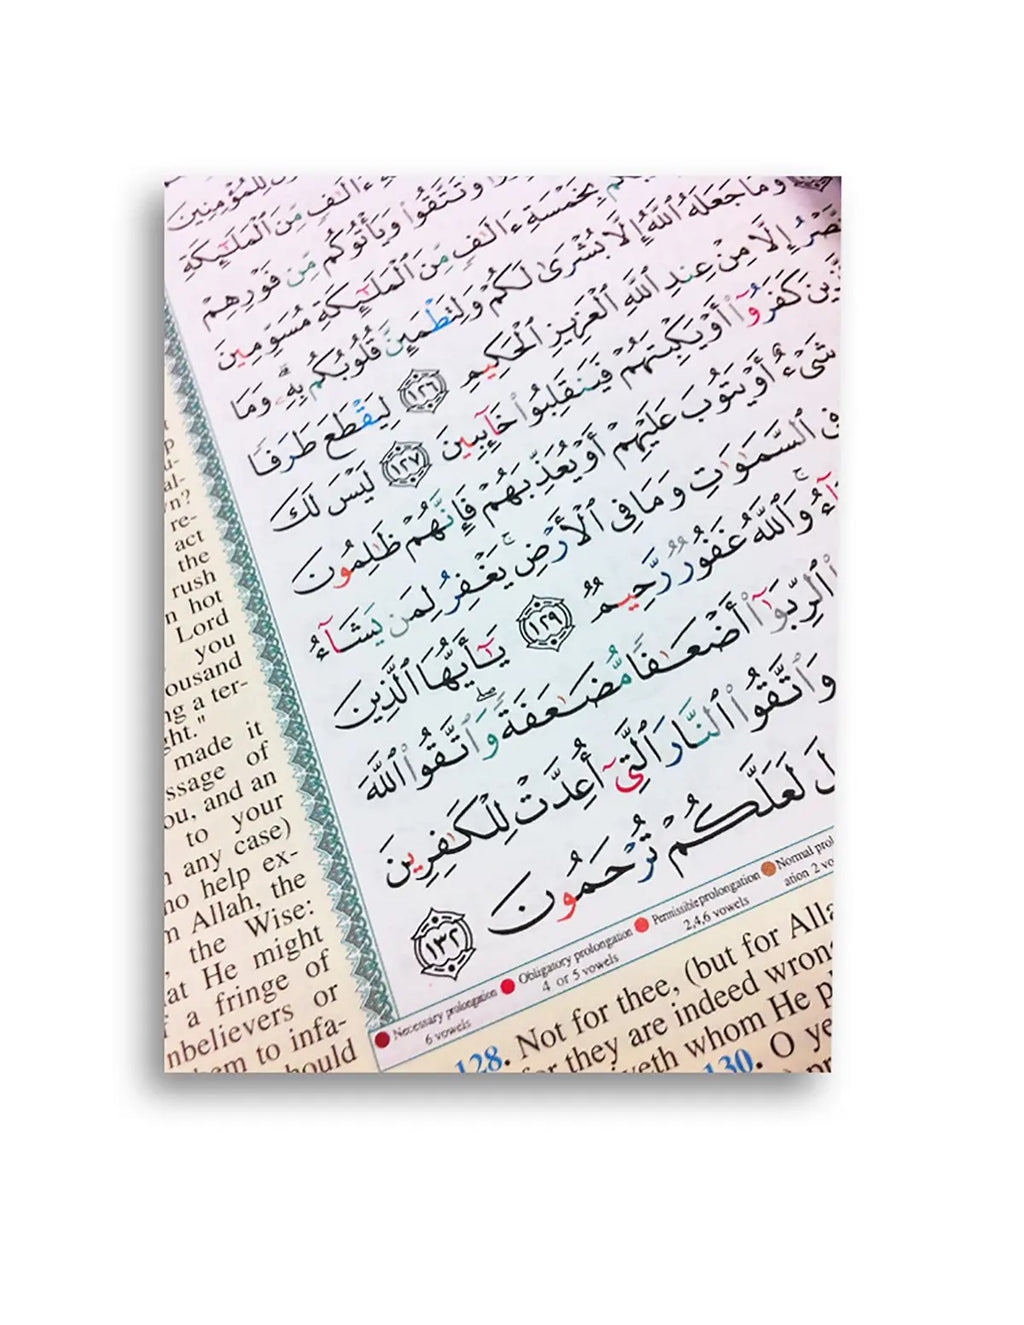 لِلْمُؤْمِنِينَ
ءَالَٰفٍ مِّنَ ٱلْمَلَٰٓئِكَةِ
وَتَتَّقُوا۟ وَيَأْتُوكُم مِّن فَوْرِهِمْ
بِخَمْسَةِ ءَالَٰفٍ مِّنَ ٱلْمَلَٰٓئِكَةِ مُسَوِّمِينَ
وَمَا جَعَلَهُ ٱللَّهُ إِلَّا بُشْرَىٰ لَكُمْ وَلِتَطْمَئِنَّ قُلُوبُكُم بِهِۦ ۗ وَمَا
إِلَّا مِنْ عِندِ ٱللَّهِ ٱلْعَزِيزِ ٱلْحَكِيمِ ١٢٦ لِيَقْطَعَ طَرَفًا
كَفَرُوٓا۟ أَوْ يَكْبِتَهُمْ فَيَنقَلِبُوا۟ خَآئِبِينَ ١٢٧ لَيْسَ لَكَ
شَىْءٌ أَوْ يَتُوبَ عَلَيْهِمْ أَوْ يُعَذِّبَهُمْ فَإِنَّهُمْ ظَٰلِمُونَ
فِى ٱلسَّمَٰوَٰتِ وَمَا فِى ٱلْأَرْضِ ۚ يَغْفِرُ لِمَن يَشَآءُ
وَٱللَّهُ غَفُورٌ رَّحِيمٌ ١٢٩ يَٰٓأَيُّهَا ٱلَّذِينَ
ٱلرِّبَوٰٓا۟ أَضْعَٰفًا مُّضَٰعَفَةً ۖ وَٱتَّقُوا۟ ٱللَّهَ
وَٱتَّقُوا۟ ٱلنَّارَ ٱلَّتِىٓ أُعِدَّتْ لِلْكَٰفِرِينَ
لَعَلَّكُمْ تُرْحَمُونَ ١٣٢
Necessary prolongation 6 vowels
Obligatory prolongation 4 or 5 vowels
Permissible prolongation 2,4,6 vowels
Normal
ation 2
re-
act
the
rush
hot
Lord
you
ousand
a ter-
ght."
made it
ssage of
ou, and an
to your
any case)
help ex-
Allah, the
the Wise:
at He might
a fringe of
nbelievers or
em to infa-
hould
128. Not for thee, (but for Alla
they are indeed wron
whom He p
130. O ye